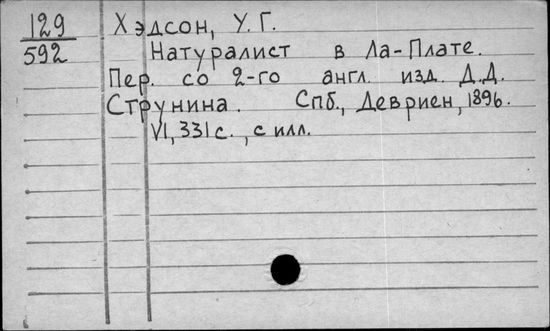 129
592
Хэдсон, У. Г.
Натуралист в Ла-Плате.
Пер. со 2-го англ. изд. Д.Д.
Струнина. Спб., Девриен, 1896.
VI, 331 с., с илл.